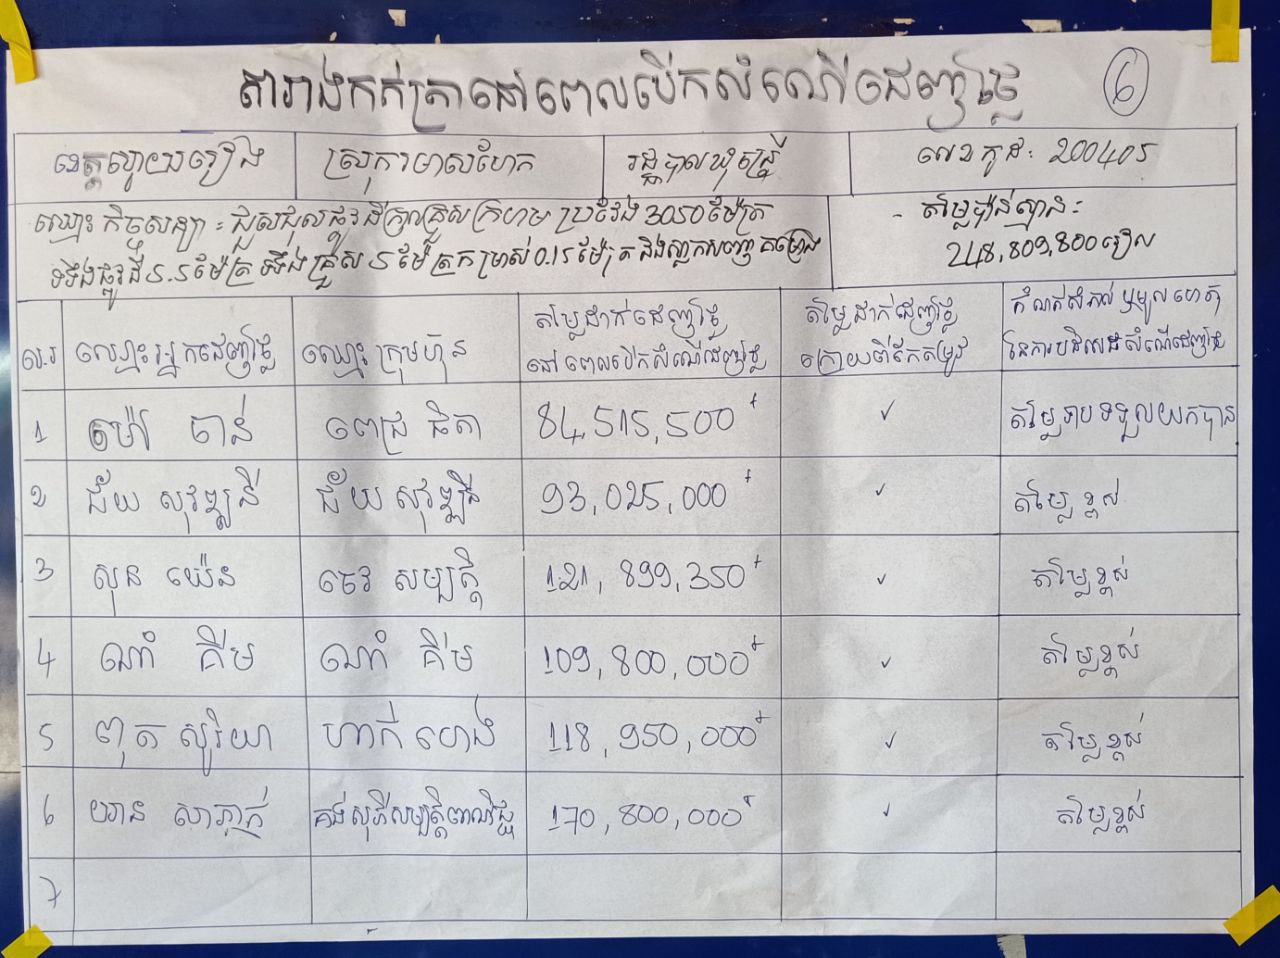 តារាងកត់ត្រានៅពេលបើកសំណើដេញថ្លៃ 6
ខេត្តស្វាយរៀង ស្រុករមាសហែក រដ្ឋបាលឃុំចន្ទ្រី លេខកូដ: 200405
ឈ្មោះកិច្ចសន្យា: ជួសជុលផ្លូវដីក្រាលគ្រួសក្រហម ប្រវែង 3050ម៉ែត្រ
ទទឹងផ្លូវដី 5.5ម៉ែត្រ ទទឹងគ្រួស 5ម៉ែត្រ កម្រាស់ 0.15ម៉ែត្រ និងស្លាកសញ្ញាគម្រោង
- តម្លៃប៉ាន់ស្មាន:
218,809,800រៀល
ល.រ ឈ្មោះអ្នកដេញថ្លៃ ឈ្មោះក្រុមហ៊ុន តម្លៃដាក់ដេញថ្លៃ នៅពេលបើកសំណើដេញថ្លៃ តម្លៃដាក់ដេញថ្លៃ ក្រោយពីកែតម្រូវ កំណត់សំគាល់ ឬមូលហេតុ នៃការបដិសេធសំណើដេញថ្លៃ
1 ម៉ៅ ចាន់ ពេជ្រ ធិតា 84,515,500៛ ✓ តម្លៃទាបទទួលយកបាន
2 ជ័យ សុវឌ្ឍនី ជ័យ សុវឌ្ឍនី 93,025,000៛ ✓ តម្លៃខ្ពស់
3 សុន យ៉េន ចេវ សម្បត្តិ 121,899,350៛ ✓ តម្លៃខ្ពស់
4 ណាំ គីម ណាំ គីម 109,800,000៛ ✓ តម្លៃខ្ពស់
5 ពុត សូរិយា ហាក់ ហេង 118,950,000៛ ✓ តម្លៃខ្ពស់
6 ឃាន សាភ្នាក់ គង់សុភីសម្បត្តិពាណិជ្ជ 170,800,000៛ ✓ តម្លៃខ្ពស់
7